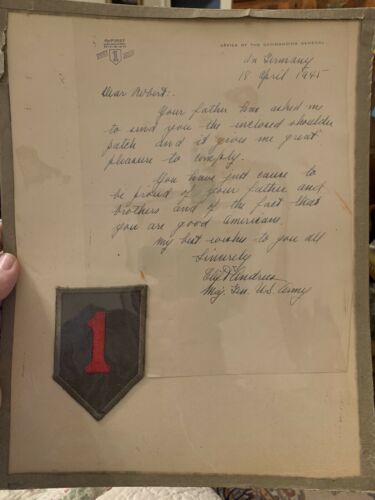 THE FIRST
DIVISION
1
OFFICE OF THE COMMANDING GENERAL
In Germany
18 April 1945
Dear Robert:
Your father has asked me
to send you the inclosed shoulder
patch and it gives me great
pleasure to comply.
You have just cause to
be proud of your father and
brothers and of the fact that
you are good Americans.
My best wishes to you all
Sincerely
Andrus
Maj. Gen. U.S. Army
1